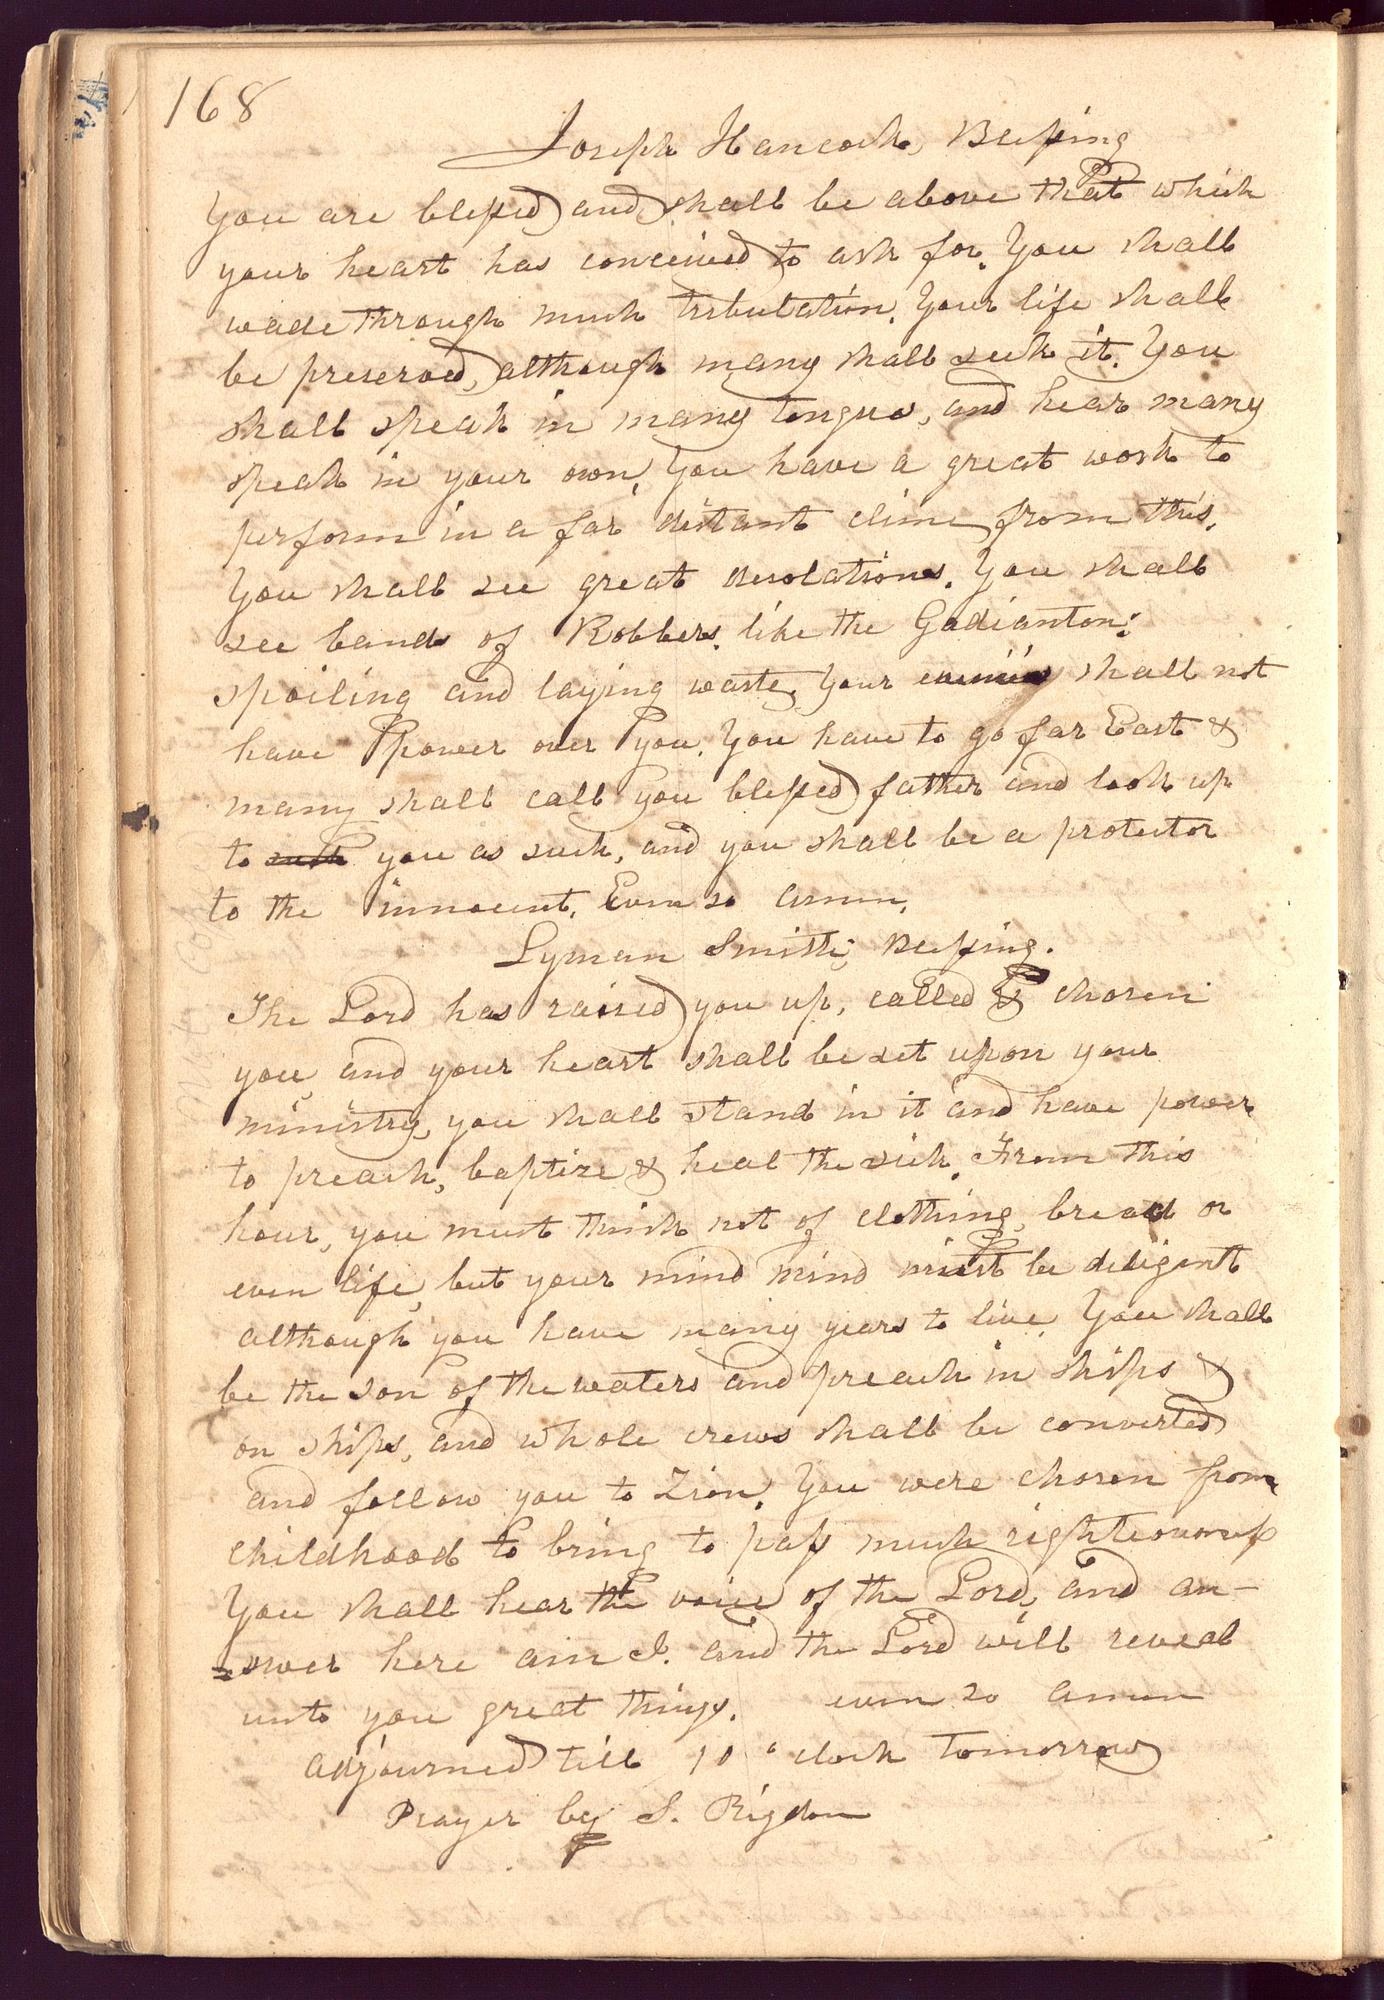 168
Joseph Hancock, Blessing
You are blessed and shall be above that which
your heart has conceived to ask for. You shall
wade through much tribulation. Your life shall
be preserved, although many shall seek it. You
shall speak in many tongues, and hear many
speak in your own. You have a great work to
perform in a far distant clime from this.
You shall see great desolations. You shall
see bands of Robbers, like the Gadianton;
spoiling and laying waste, Your enemies shall not
have power over you. You have to go far East &
many shall call you blessed father and look up
to such you as such, and you shall be a protector
to the innocent. Even so amen.
Lyman Smith; Blessing.
The Lord has raised you up, called & chosen
you, and your heart shall be set upon your
ministry, you shall stand in it and have power
to preach, baptize & heal the sick. From this
hour, you must think not of clothing, bread or
even life, but your mind mind must be deligent
although you have many years to live. You shall
be the son of the waters and preach in ships &
on ships, and whole crews shall be converted
and follow you to Zion. You were chosen from
childhood to bring to pass much righteousness
You shall hear the voice of the Lord, and an-
=swer here am I. and the Lord will reveal
unto you great things. even so amen
adjourned till 10 o clock tomorrow
Prayer by S. Rigdon